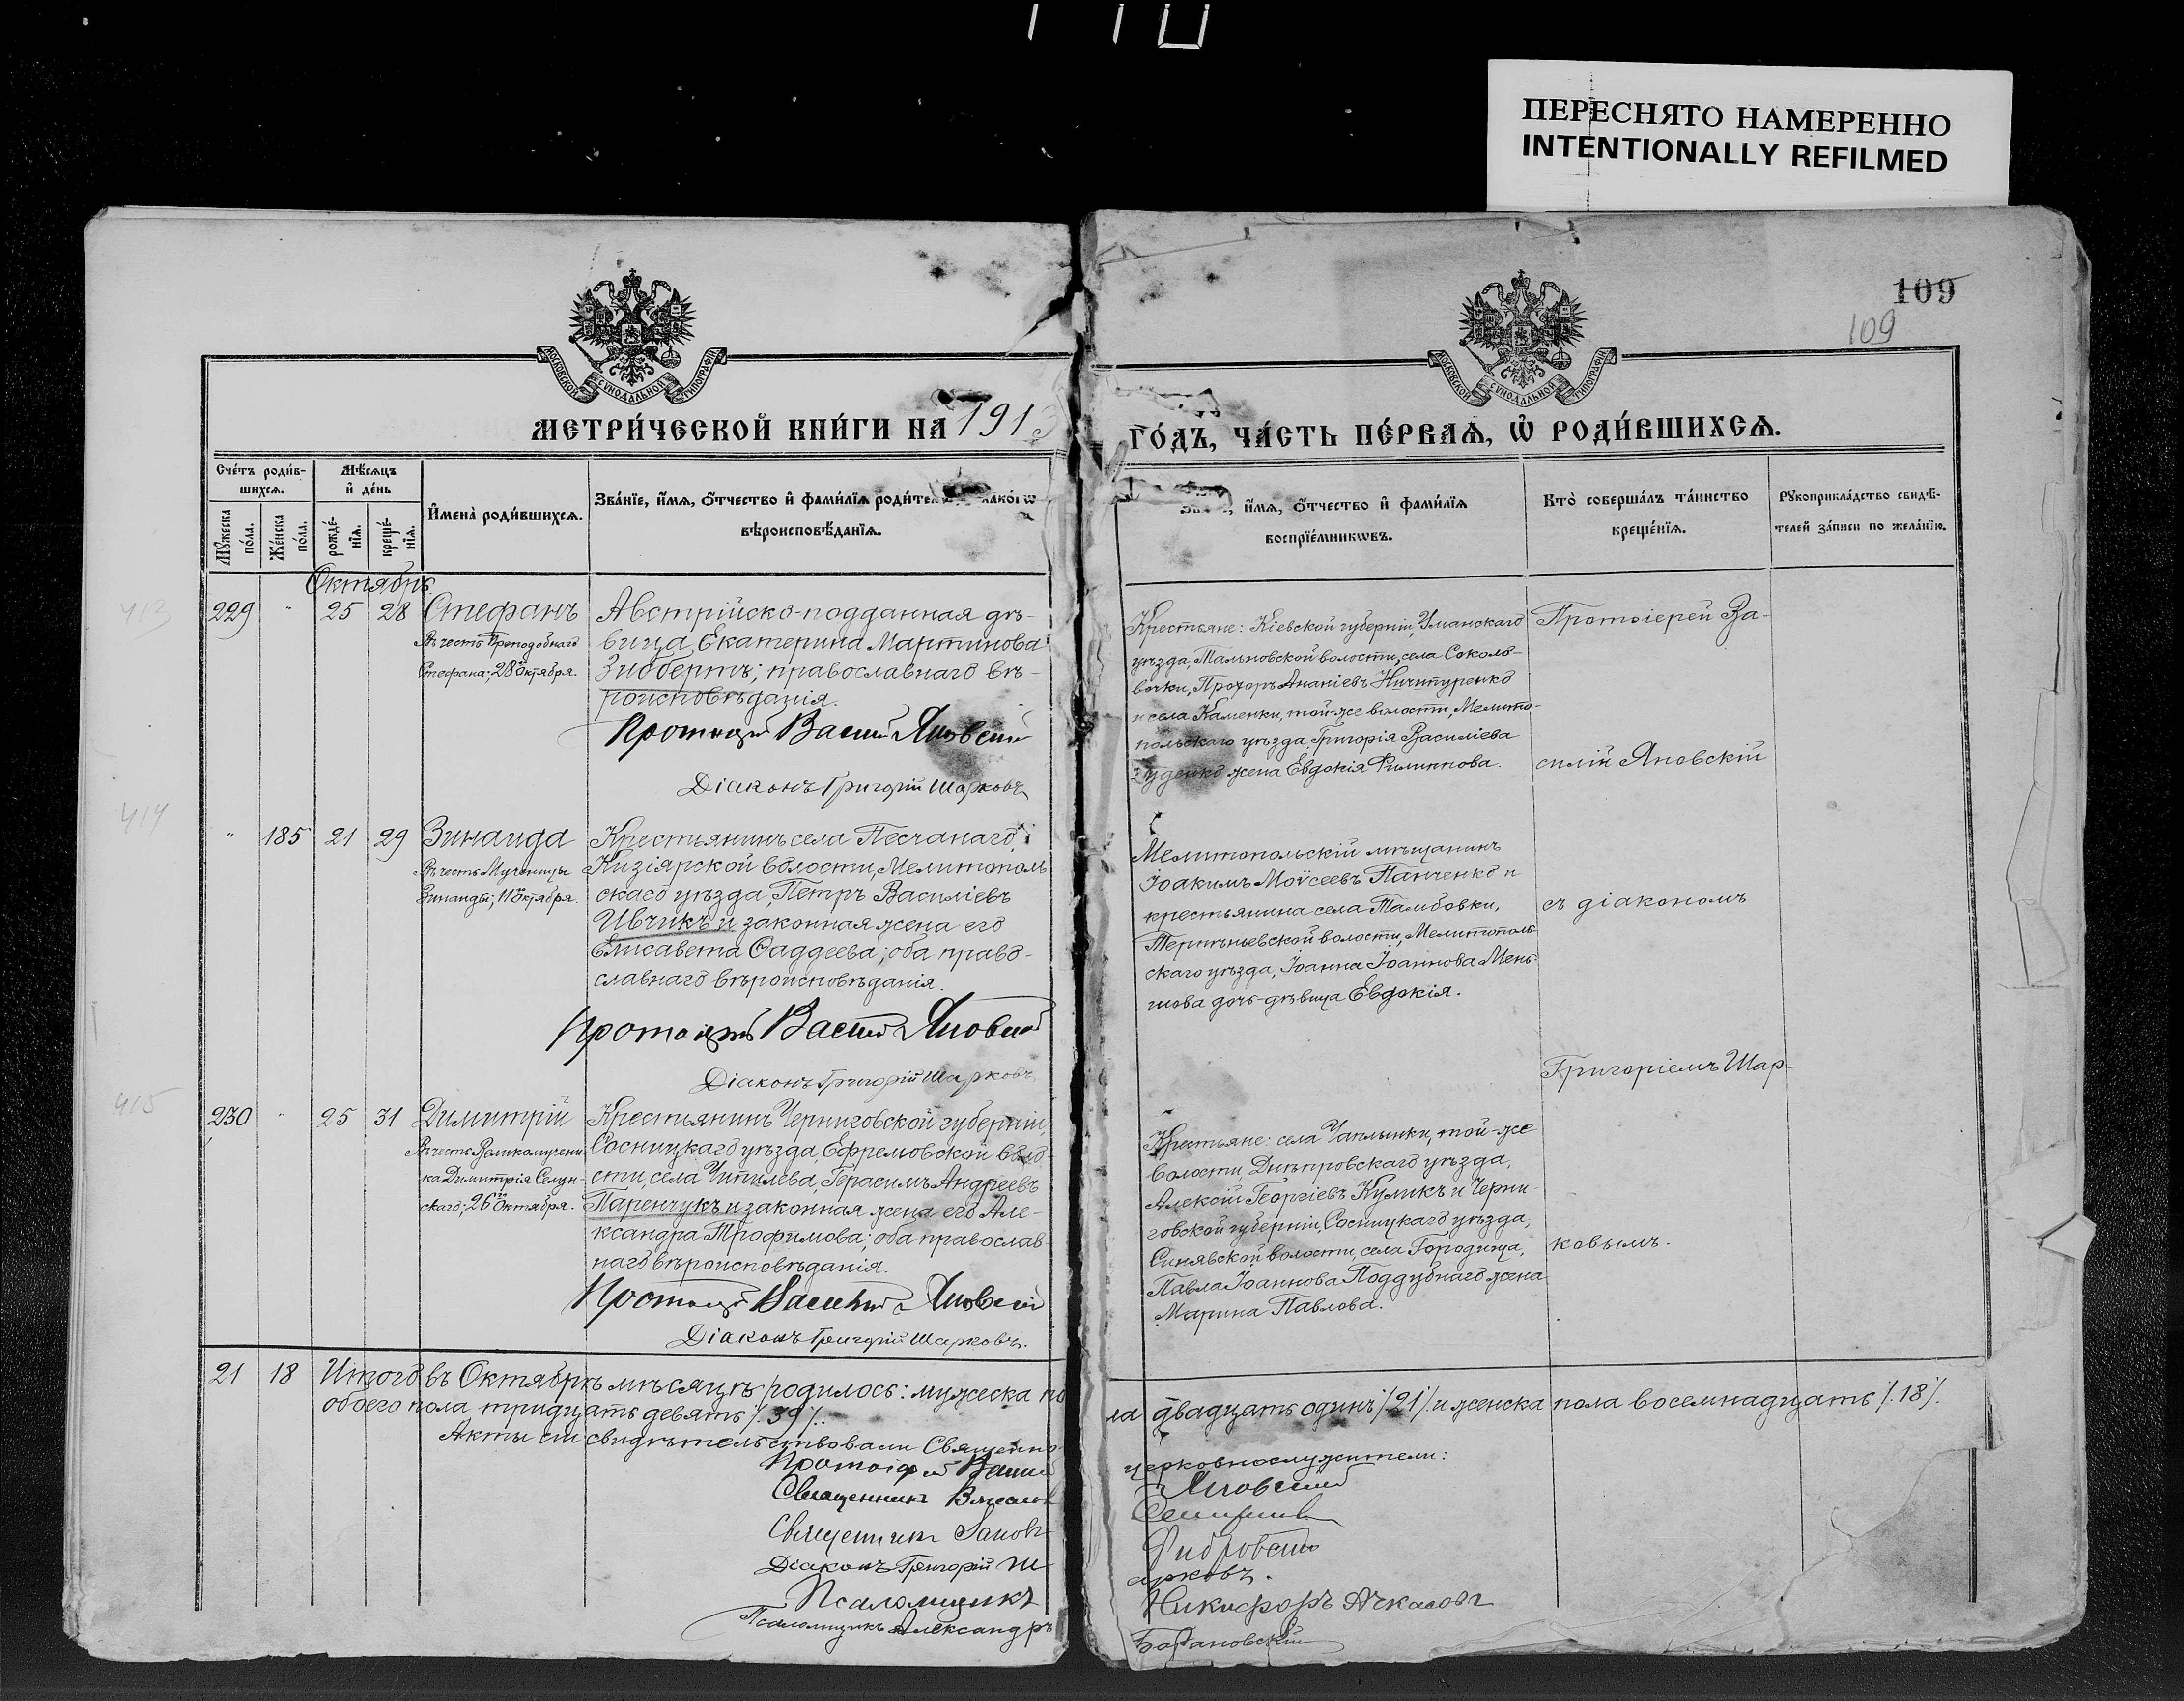 ПЕРЕСНЯТО НАМЕРЕННО
INTENTIONALLY REFILMED
109
109
МОСКОВСКОЙ СУНОДАЛЬНОЙ ТИПОГРАФІИ
МОСКОВСКОЙ СУНОДАЛЬНОЙ ТИПОГРАФІИ
МЕТРИ́ЧЕСКОЙ КНИ́ГИ НА 1913
ГО́ДЪ, ЧА́СТЬ ПЕ́РВАѦ, Ѡ РОДИ́ВШИХСѦ.
Сче́тъ роди́в-
шихсѧ.
Мѣ́сѧцъ
и де́нь
Мꙋ́жеска по́ла.
Же́нска по́ла.
рожде́-
нїѧ.
креще́-
нїѧ.
Имена̀ роди́вшихсѧ.
Зва́нїе, и́мѧ, ѻ́тчество и фами́лїѧ роди́тел
вѣроисповѣ́данїѧ.
и́мѧ, ѻ́тчество и фами́лїѧ
воспрїе́мникѡвъ.
Кто̀ соверша́лъ та́инство
креще́нїѧ.
Рꙋкоприкла́дство свидѣ́-
телей за́писи по жела́нїю.
Октябрь
413
229 " 25 28 Стефанъ
Въ честь Преподобнаго
Стефана; 28го Октября.
Австрійско-подданная дѣ-
вица Екатерина Мартинова
Зиоберть; православнаго вѣ-
роисповѣданія.
Протоіерей Василій Яновскій
Діаконъ Григорій Шарковъ
Крестьяне: Кіевской губерніи, Уманскаго
уѣзда, Тальновской волости, села Соколо-
вочки, Прохоръ Ананіевъ Ничипуренко
и села Каменки, той-же волости, Мелито-
польскаго уѣзда, Григорія Василіева
жена Евдокія Филиппова.
Протоіерей Ва-
силій Яновскій
414
" 185 21 29 Зинаида
Въ честь Мученицы
Зинаиды; 11го Октября.
Крестьянинъ села Песчанаго,
Кизіярской волости, Мелитополь
скаго уѣзда, Петръ Василіевъ
Ивчикъ и законная жена его
Елисавета Фаддеева; оба право-
славнаго вѣроисповѣданія.
Протоіерей Василій Яновскій
Діаконъ Григорій Шарковъ
Мелитопольскій мѣщанинъ
Іоакимъ Моѵсеевъ Панченко и
крестьянина села Тамбовки,
Терпѣньевской волости, Мелитополь-
скаго уѣзда, Іоанна Іоаннова Мень-
шова дочь-дѣвица Евдокія.
съ діакономъ
Григоріемъ Шар-
415
230 " 25 31 Димитрій
Въ честь Великомучени-
ка Димитрія Селун-
скаго; 26го Октября.
Крестьянинъ Черниговской губерніи,
Сосницкаго уѣзда, Ефремовской воло-
сти, села Чипилева, Герасимъ Андреевъ
Паренчукъ и законная жена его Але-
ксандра Трофимова; оба православ-
наго вѣроисповѣданія.
Протоіерей Василій Яновскій
Діаконъ Григорій Шарковъ.
Крестьяне: села Чаплынки, той-же
волости, Днѣпровскаго уѣзда,
Алексій Георгіевъ Куликъ и Черни-
говской губерніи, Сосницкаго уѣзда,
Синявской волости, села Городища,
Павла Іоаннова Поддубнаго жена
Марина Павлова.
ковымъ.
21 18 Итого въ Октябрѣ мѣсяцѣ родилось: мужеска по
ла двадцать одинъ /.21./ и женска пола восемнадцать /.18./.
обоего пола тридцать девять /.39./.
Акты сіи свидѣтельствовали Священно
церковнослужители:
Протоіерей Василій
Яновскій
Священникъ
Священникъ
Діаконъ Григорій Ш
арковъ.
Псаломщикъ
Никифоръ Ачкасовъ
Псаломщикъ Александръ
Барановскій